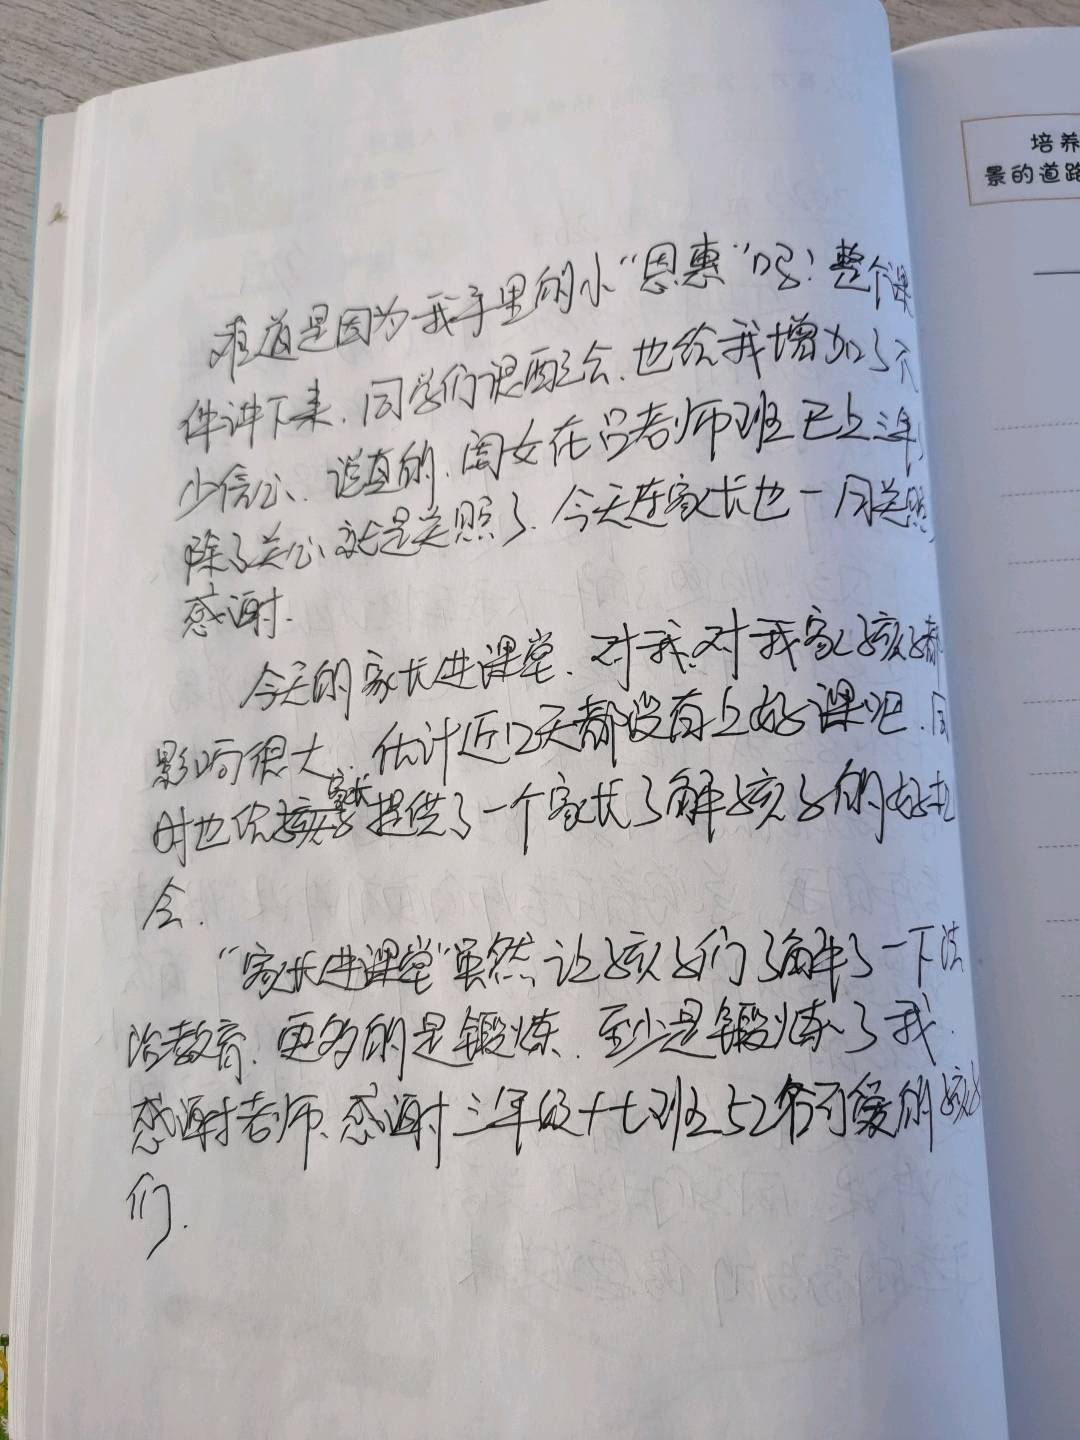 难道是因为我手里的小“恩惠”吗？整个课
件讲下来，同学们很配合，也给我增加了不
少信心，说真的，闺女在吕老师班已上三年，
除了关心就是关照了，今天连家长也一同关照
感谢.
今天的家长进课堂，对我，对我家孩子都
影响很大，估计近几天都没有上好课吧，同
时也给家长提供了一个家长了解孩子的好机
会.
“家长进课堂”虽然让孩子们了解了一下法
治教育，更多的是锻炼，至少是锻炼了我，
感谢老师、感谢三年级十七班52名可爱的孩子
们.
培养
景的道路